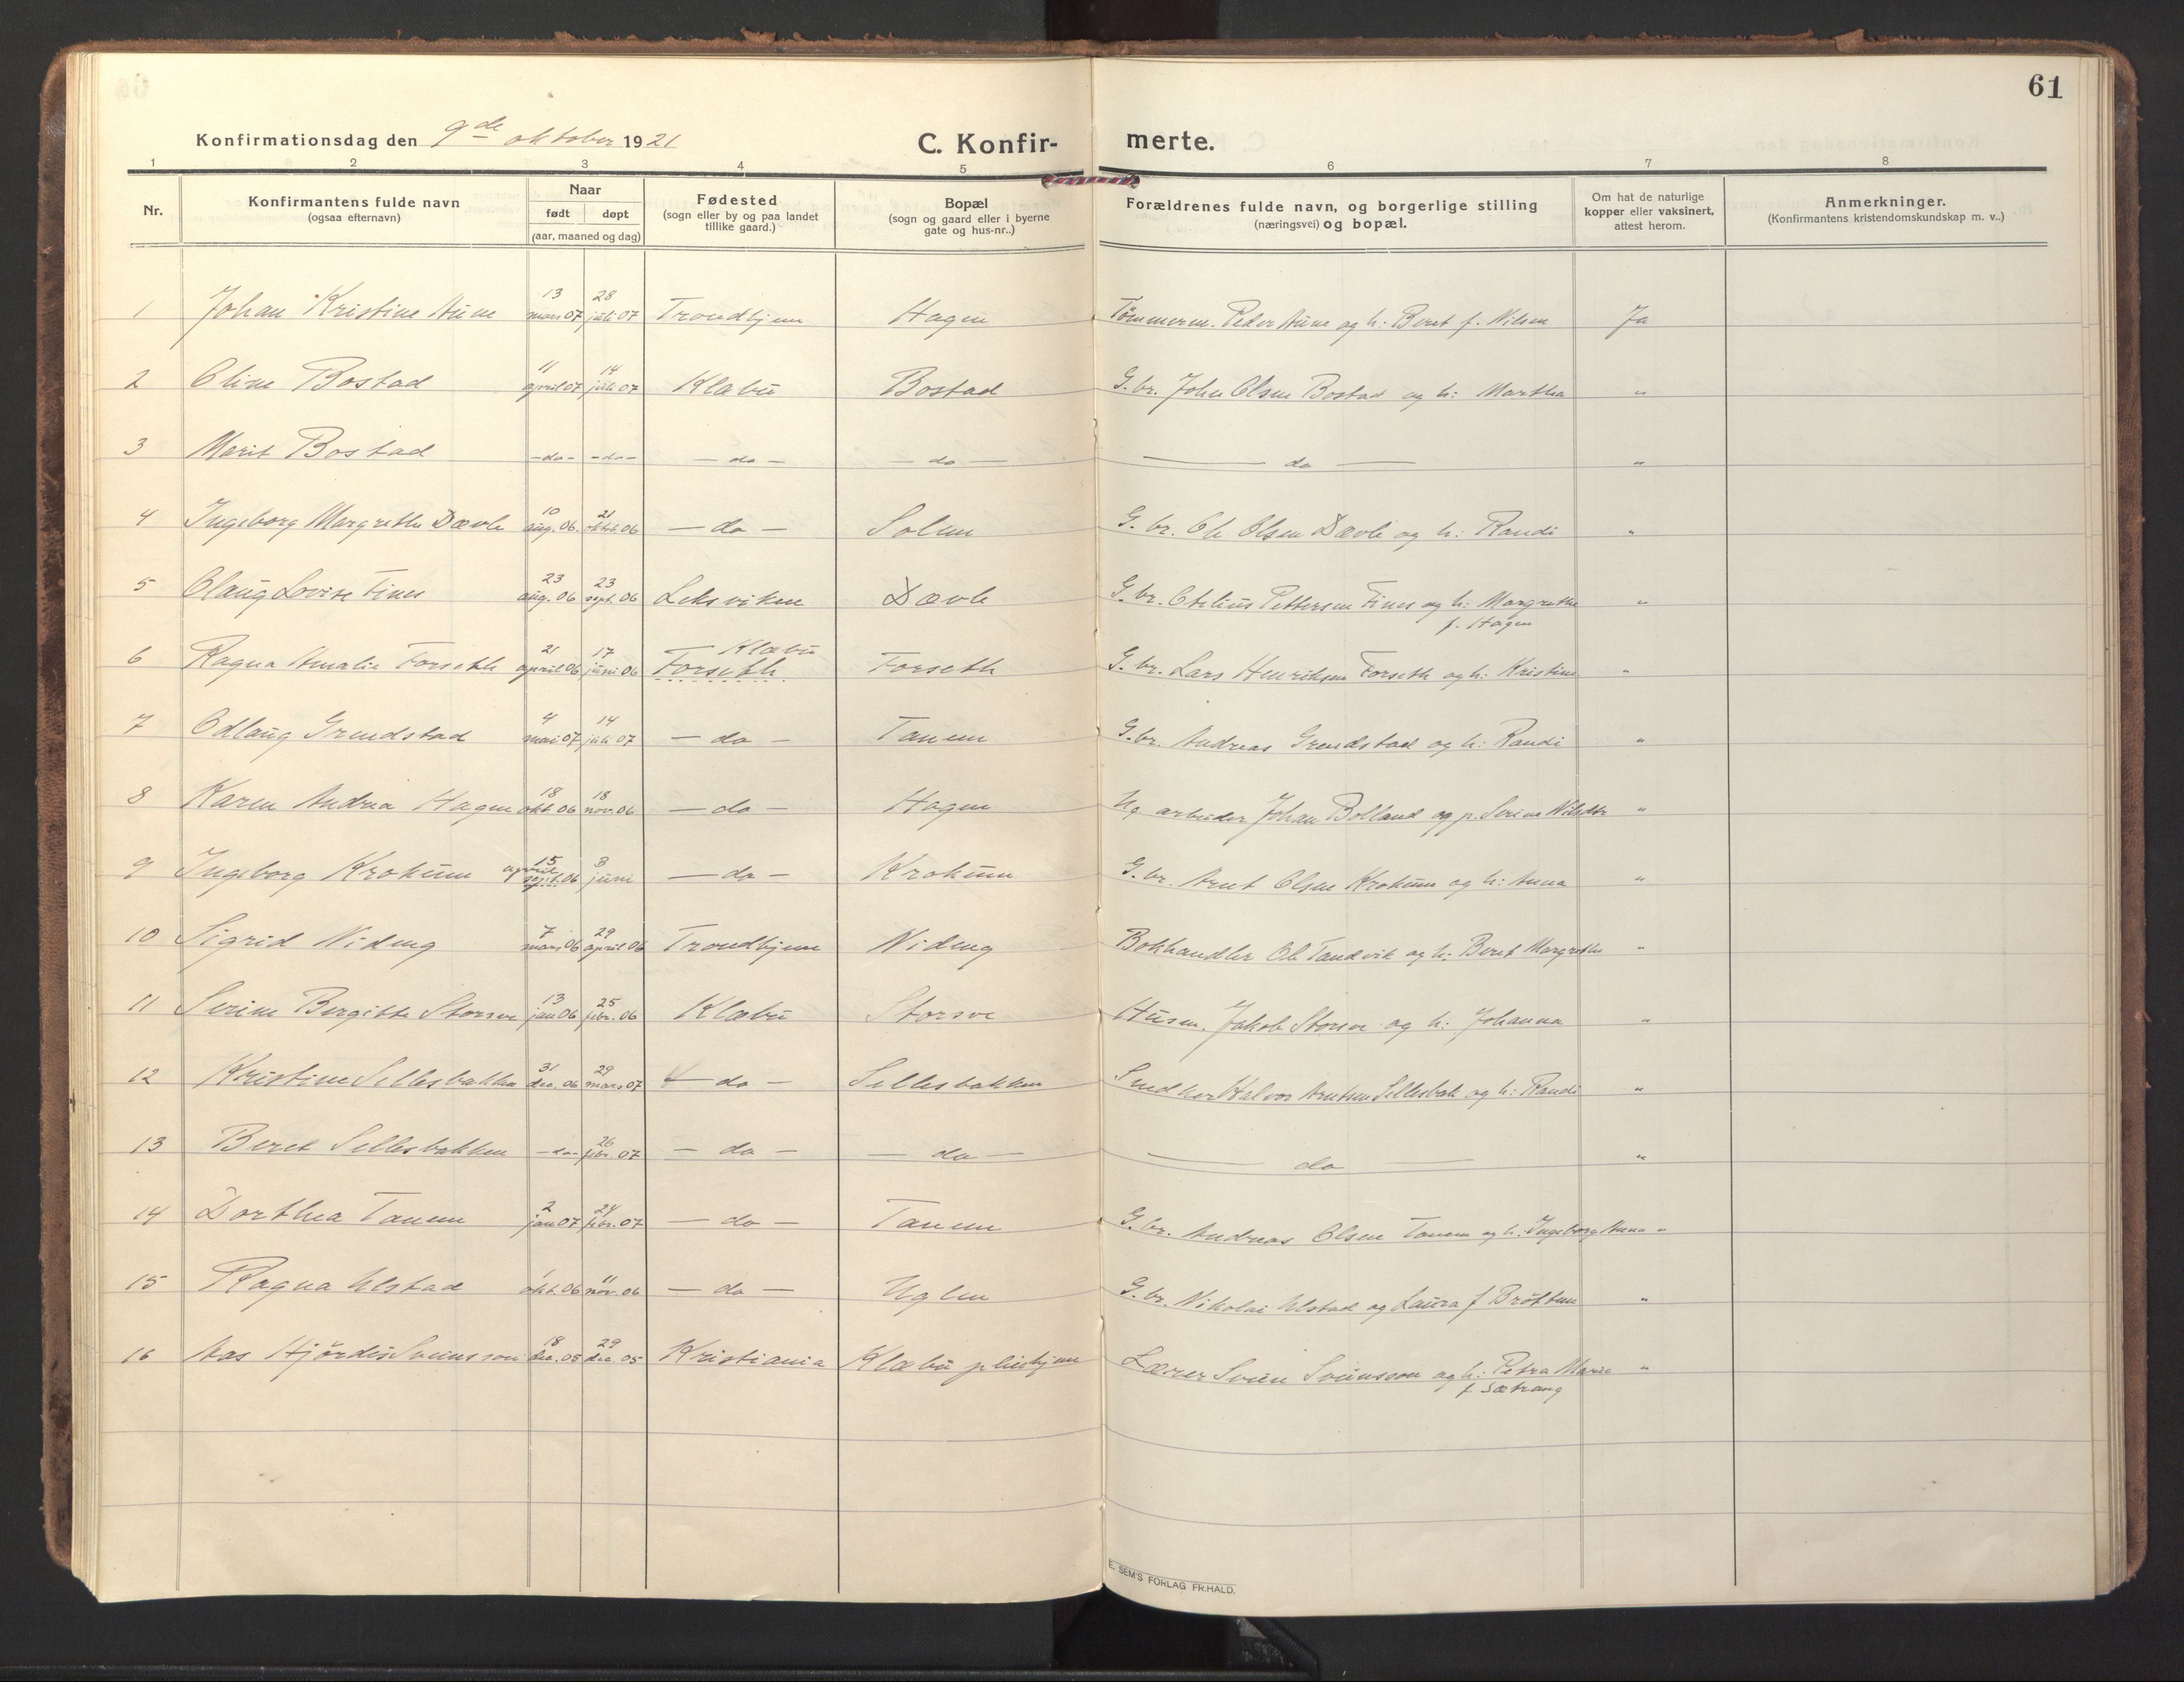 61
Konfirmationsdag den 9de oktober 1921 C. Konfir- merte.
1 2 3 4 5 6 7 8
Nr. Konfirmantens fulde navn (ogsaa efternavn) Naar født døpt (aar, maaned og dag) Fødested (sogn eller by og paa landet tillike gaard.) Bopæl (sogn og gaard eller i byerne gate og hus-nr..) Forældrenes fulde navn, og borgerlige stilling (næringsvei) og bopæl. Om hat de naturlige kopper eller vaksinert, attest herom. Anmerkninger. (Konfirmantens kristendomskundskap m. v..)
1 Johan Kristine Aune 13 mars 07 28 juli 07 Trondhjem Hagen Tømmerm. Peder Aune og h: Beret f. Nilsen Ja
2 Oline Bostad 11 april 07 14 juli 07 Klæbu Bostad G.br. John Olsen Bostad og h: Martha "
3 Marit Bostad -do- -do- - do - - do - - do - "
4 Ingeborg Margrethe Dævle 10 aug. 06. 21 oktbr. 06 - do - Solem G. br. Ole Olsen Dævle og h: Randi "
5 Olaug Lovise Fines 23 aug. 06 23 sept. 06 Leksviken Dævle G. br. Otelius Pettersen Fines og h: Margrethe f. Hagen "
6 Ragna Amalie Forseth 21 april 06 17 juni 06 - Klæbu Forseth Forseth G. br. Lars Henriksen Forseth og h: Kristine "
7 Odlaug Grendstad 4 mai 07 14 juli 07 - do - Tanem G.br. Andreas Grendstad og h: Randi "
8 Karen Andrea Hagen 18 okt. 06 18 nov. 06 - do - Hagen Ug arbeider Johan Bolland og p. Serine Nilsdtr "
9 Ingeborg Krokum 15 april sept. 06 3 juni - do - Krokum G. br. Arnt Olsen Krokum og h: Anna "
10 Sigrid Nideng 7 mars 06 29 april 06 Trondhjem Nideng Bokhandler Ole Tandvik og h: Beret Margrethe "
11 Serine Bergitte Storsve 13 jan 06 25 febr. 06 Klæbu Storsve Husm. Jakob Storsve og h: Johanna "
12 Kristine Sellesbakken 31 dec. 06 29 mars 07 - do - Sellesbakken Snedker Halvor Arntsen Sellesbak og h: Randi "
13 Beret Sellesbakken - do - 26 febr. 07 - do - - do - - do - "
14 Dorthea Tanem 2 jan 07 24 febr. 07 - do - Tanem G. br. Andreas Olsen Tanem og h: Ingeborg Anna "
15 Ragna Ulstad 1 okt. 06 11 nov. 06 - do - Uglen G. br. Nikolai Ulstad og Laura f Brøttem "
16 Aas Hjørdis Sveinsson 18 dec. 05 29 dec. 05 Kristiania Klæbu pleiehjem Lærer Svein Sveinsson og h: Petra Marie f. Sætrang "
E. SEM'S FORLAG FR.HALD.